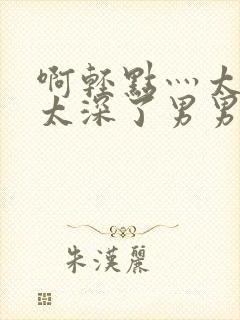 啊轻點灬太
太深了男男
朱漢麗